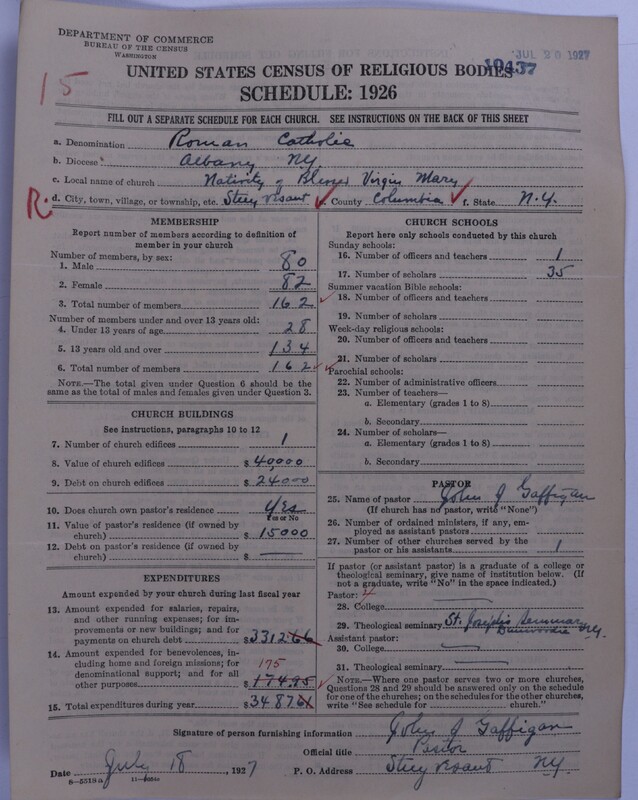 DEPARTMENT OF COMMERCE
BUREAU OF THE CENSUS
WASHINGTON
JUL 20 1927
10437
15
UNITED STATES CENSUS OF RELIGIOUS BODIES
SCHEDULE: 1926
FILL OUT A SEPARATE SCHEDULE FOR EACH CHURCH. SEE INSTRUCTIONS ON THE BACK OF THIS SHEET
a. Denomination Roman Catholic
b. Diocese Albany NY.
c. Local name of church Nativity of Blessed Virgin Mary
R. d. City, town, village, or township, etc. Stuyvesant e. County Columbia f. State N.Y.
MEMBERSHIP
Report number of members according to definition of
member in your church
Number of members, by sex:
1. Male 80
2. Female 82
3. Total number of members 162
Number of members under and over 13 years old:
4. Under 13 years of age 28
5. 13 years old and over 134
6. Total number of members 162
NOTE.—The total given under Question 6 should be
same as the total of males and females given under Question 3.
CHURCH BUILDINGS
See instructions, paragraphs 10 to 12
7. Number of church edifices 1
8. Value of church edifices $ 40,000
9. Debt on church edifices $ 24000
10. Does church own pastor's residence Yes
Yes or No
11. Value of pastor's residence (if owned by
church) $ 15000
12. Debt on pastor's residence (if owned by
church) $
EXPENDITURES
Amount expended by your church during last fiscal year
13. Amount expended for salaries, repairs,
and other running expenses; for im-
provements or new buildings; and for
payments on church debt $ 331266
14. Amount expended for benevolences, in-
cluding home and foreign missions; for
denominational support; and for all 175
other purposes $ 174.95
15. Total expenditures during year $ 348761
CHURCH SCHOOLS
Report here only schools conducted by this church
Sunday schools:
16. Number of officers and teachers 1
17. Number of scholars 35
Summer vacation Bible schools:
18. Number of officers and teachers
19. Number of scholars
Week-day religious schools:
20. Number of officers and teachers
21. Number of scholars
Parochial schools:
22. Number of administrative officers
23. Number of teachers—
a. Elementary (grades 1 to 8)
b. Secondary
24. Number of scholars—
a. Elementary (grades 1 to 8)
b. Secondary
PASTOR
25. Name of pastor John J Gaffigan
(If church has no pastor, write "None")
26. Number of ordained ministers, if any, em-
ployed as assistant pastors
27. Number of other churches served by the
pastor or his assistants 1
If pastor (or assistant pastor) is a graduate of a college or
theological seminary, give name of institution below. (If
not a graduate, write "No" in the space indicated.)
Pastor:
28. College
29. Theological seminary St. Joseph's Seminary
Dunwoodie N.Y.
Assistant pastor:
30. College
31. Theological seminary
NOTE.—Where one pastor serves two or more churches,
Questions 28 and 29 should be answered only on the schedule
for one of the churches; on the schedules for the other churches,
write "See schedule for church."
Signature of person furnishing information John J Gaffigan
Official title Pastor
Date July 18, 1927 P. O. Address Stuyvesant NY.
8—5518a